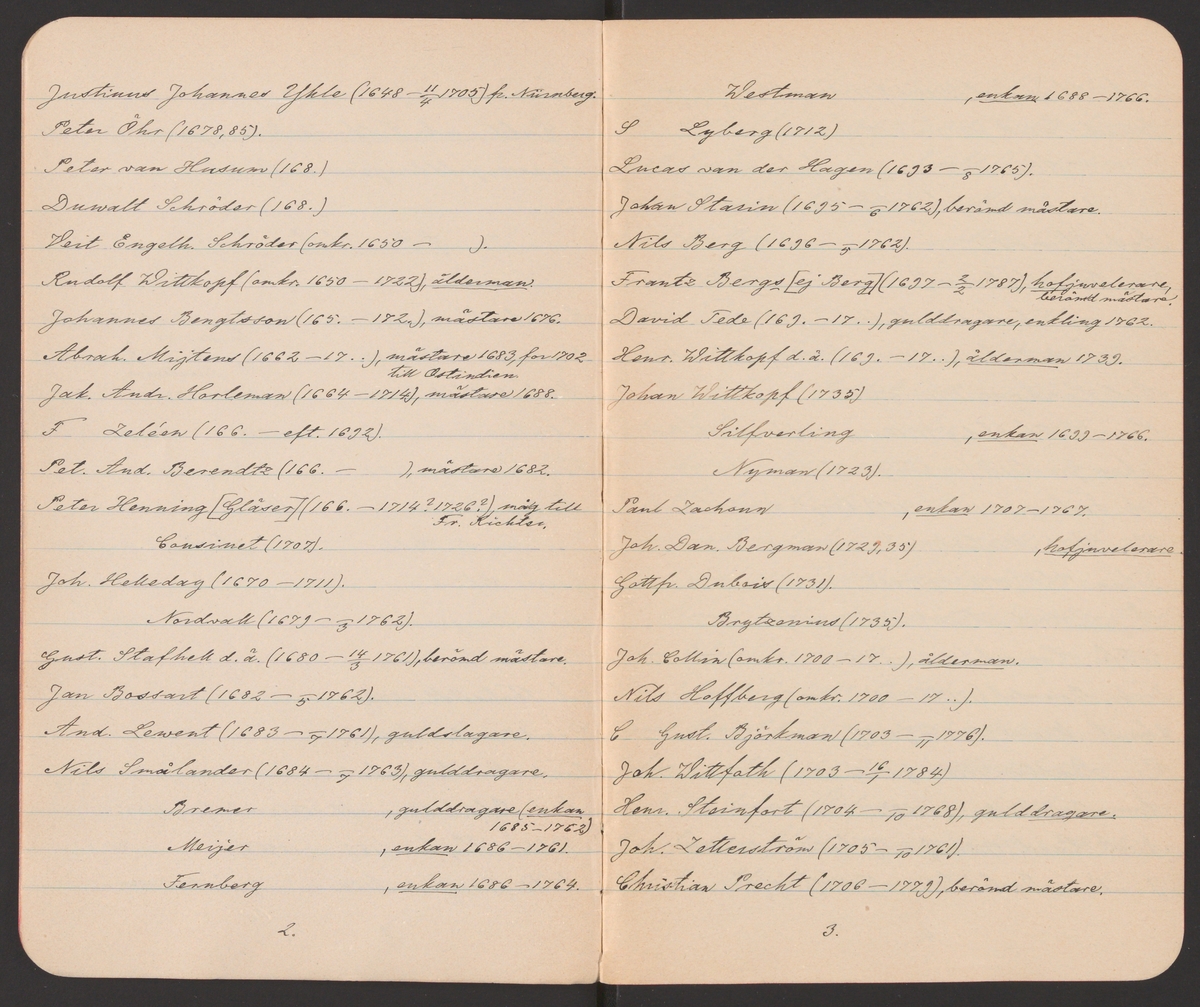 Justinus Johannes Yhle (1648 – 11/4 1705) fr. Nürnberg.
Peter Öhr (1678,85).
Peter van Husum (168.)
Duwalt Schröder (168.)
Veit Engelh. Schröder (omkr. 1650 – ).
Rudolf Wittkopf (omkr. 1650 – 1722), ålderman.
Johannes Bengtsson (165. – 172.), mästare 1676.
Abrah. Mijtens (1662 – 17..), mästare 1683, for 1702
till Ostindien.
Jak. Andr. Horleman (1664 – 1714), mästare 1688.
F Zeléen (166. – eft. 1692).
Pet. And. Berendtz (166. – ), mästare 1682.
Peter Henning [Gläser] (166. – 1714? 1726?), måg till
Fr. Richter.
Cousinet (1707).
Joh. Helledag (1670 – 1711).
Nordvall (1679 – /3 1762).
Gust. Stafhell d.ä. (1680 – 14/3 1761), berömd mästare.
Jan Bossart (1682 – /5 1762).
And. Lewent (1683 – /7 1761), guldslagare.
Nils Smålander (1684 – /7 1763), gulddragare.
Bremer , gulddragare (enkan
1685–1762)
Meijer , enkan 1686 – 1761.
Fernberg , enkan 1686 – 1764.
2.
Westman , enkan 1688 – 1766.
S Lyberg (1712)
Lucas van der Hagen (1693 – /8 1765).
Johan Stasin (1695 – /6 1762), berömd mästare.
Nils Berg (1696 – /5 1762).
Frantz Bergs [ej Berg] (1697 – 2/2 1787), hofjuvelerare,
berömd mästare.
David Tede (169. – 17..), gulddragare, enkling 1762.
Henr. Wittkopf d.ä. (169. – 17..), ålderman 1739.
Johan Wittkopf (1735)
Silfverling , enkan 1699 – 1766.
Nyman (1723).
Paul Zachoun , enkan 1707 – 1767.
Joh. Dan. Bergman (1729,35) , hofjuvelerare.
Gottfr. Dubois (1731).
Brytzenius (1735).
Joh. Collin (omkr. 1700 – 17..), ålderman.
Nils Hoffberg (omkr. 1700 – 17..).
C Gust. Björkman (1703 – /11 1776).
Joh. Wittfoth (1703 – 16/1 1784)
Henr. Steinfort (1704 – /10 1768), gulddragare.
Joh. Zetterström (1705 – /10 1761).
Christian Precht (1706 – 1779), berömd mästare.
3.